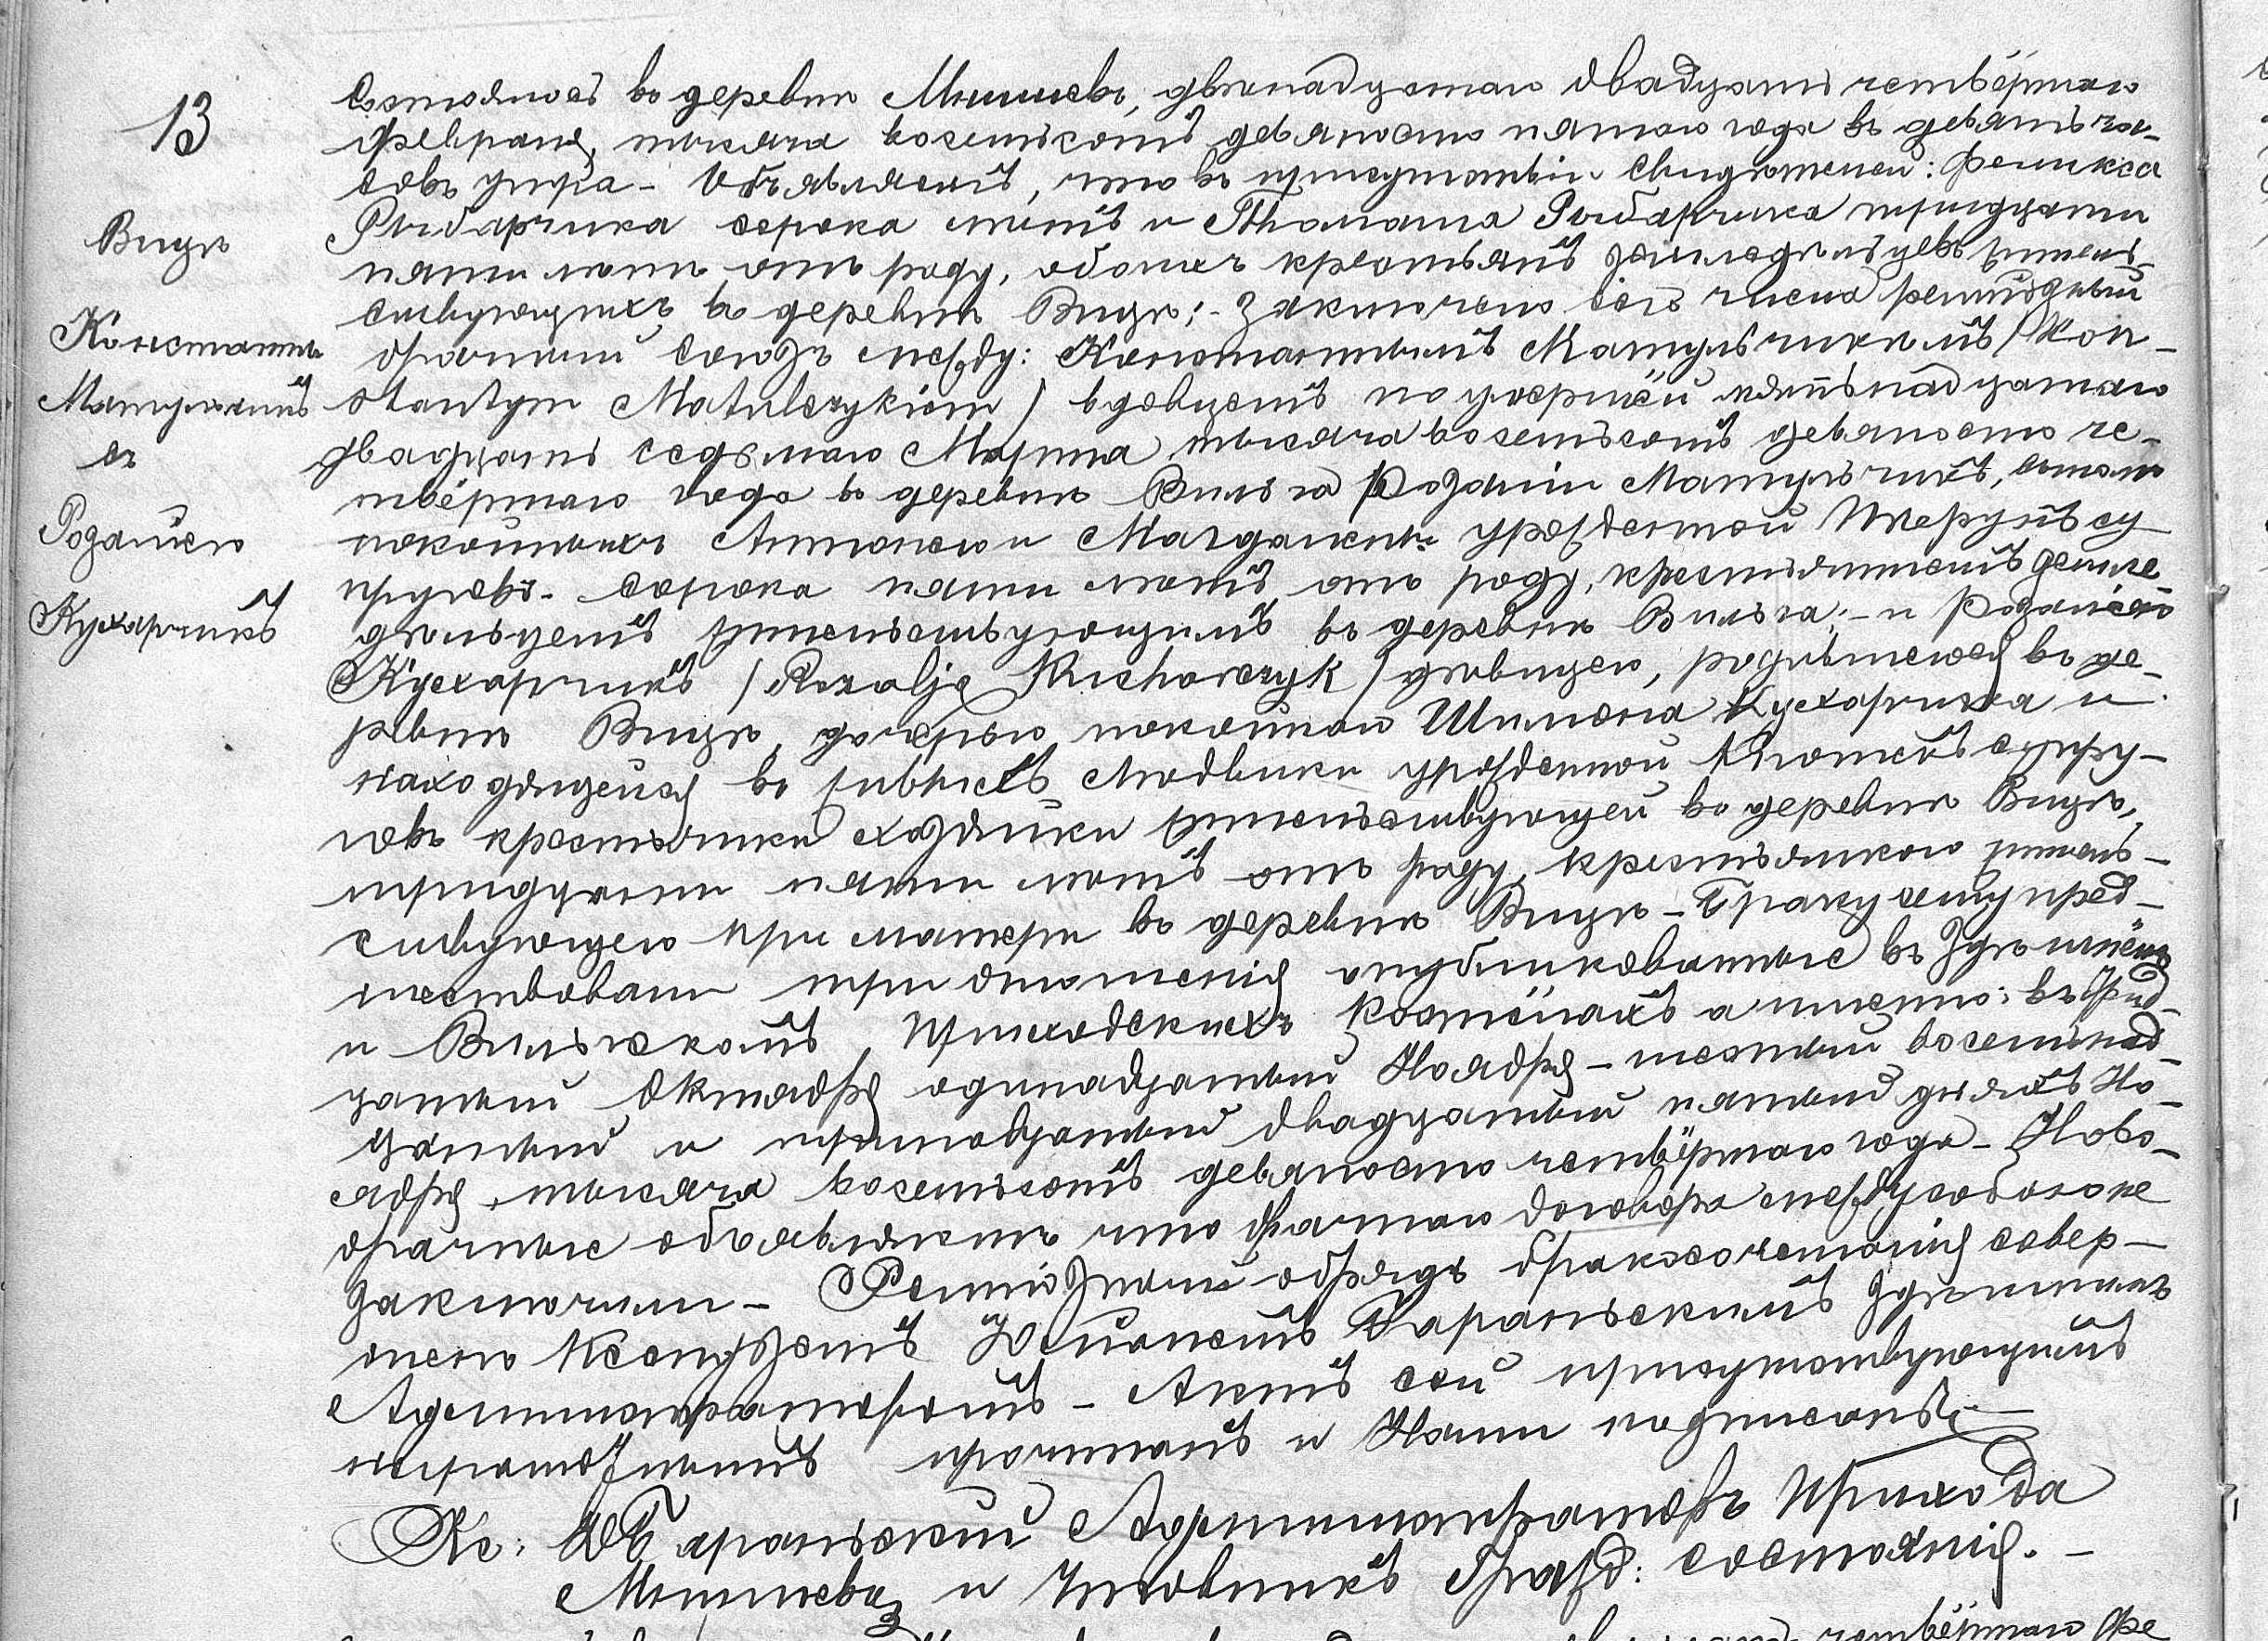 13
Вицѣ
Константы
Матульчикъ
съ
Розалiею
Кухарчикъ
Состоялось въ деревнѣ двѣнадцатаго двадцать четвёртаго
Февраля, тысяча восемьсотъ девяносто пятаго года въ девять ча-
совъ утра – Объявляемъ, что въ присутствiи свидѣтелей: Феликса
Рыбарчика сорока лѣтъ и Рыбарчика тридцати
пяти лѣтъ отъ роду, обоихъ крестьянъ земледѣльцевъ житель-
ствующихъ въ деревнѣ Вицѣ; – заключенъ сего числа религiозный
брачный союзъ между: Константымъ Матульчикомъ / Kon-
stantym Matulczykiem / вдовцемъ по умершей пятнадцатаго
двадцать седьмаго Марта тысяча восемьсотъ девяносто че-
твёртаго года въ деревнѣ Вильга Розалiи Матульчикъ, сыномъ
покойныхъ Антонего и Магдалены урожденной су-
пруговъ – сорока пяти лѣтъ отъ роду, крестьяниномъ земле-
дѣльцемъ жительствующимъ въ деревнѣ Вильга; – и Розалiею
Кухарчикъ / Rozalje Kucharczyk / дѣвицею, родившеюся въ де-
ревнѣ Вицѣ, дочерью покойнаго Шимона Кухарчика и
находящейся въ живыхъ Людвики урожденной супру-
говъ крестьянки хозяйки жительствующей въ деревнѣ Вицѣ,
тридцати пяти лѣтъ отъ роду, крестьянкою житель-
ствующею при матери въ деревнѣ Вицѣ – Браку сему пред-
шествовали три оглашенiя опубликованные въ здѣшнёмъ
и Вильжскомъ Приходскихъ Костёлахъ а именно: въ трид-
цатый Октября одинадцатый Ноября – шестый восемьнад-
цатый и тринадцатый двадцатый пятый дняхъ Но-
ября, тысяча восемьсотъ девяносто четвёртаго года – Ново-
брачные объявляютъ что брачнаго договора между собою не
заключили – Религiозный обрядъ бракосочетанiя совер-
шенъ Ксендземъ Юлiаномъ Бараньскимъ здѣшнимъ
Администраторомъ – Актъ сей присутствующимъ
неграмотнымъ прочитанъ и Нами подписанъ. –
Кс: Ю Бараньскiй Администраторъ Прихода
и Чиновникъ Гражд: состоянiя. –
четвёртаго Фе